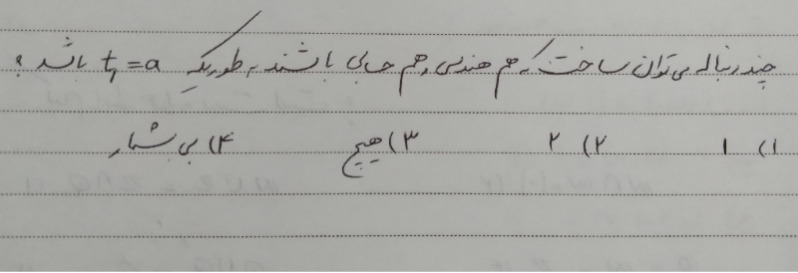 چند دنباله می توان ساخت که هم هندسی و هم حسابی باشند به طوریکه t₁=a باشد؟
۱) ۱ ۲) ۲ ۳) هیچ ۴) بی شمار